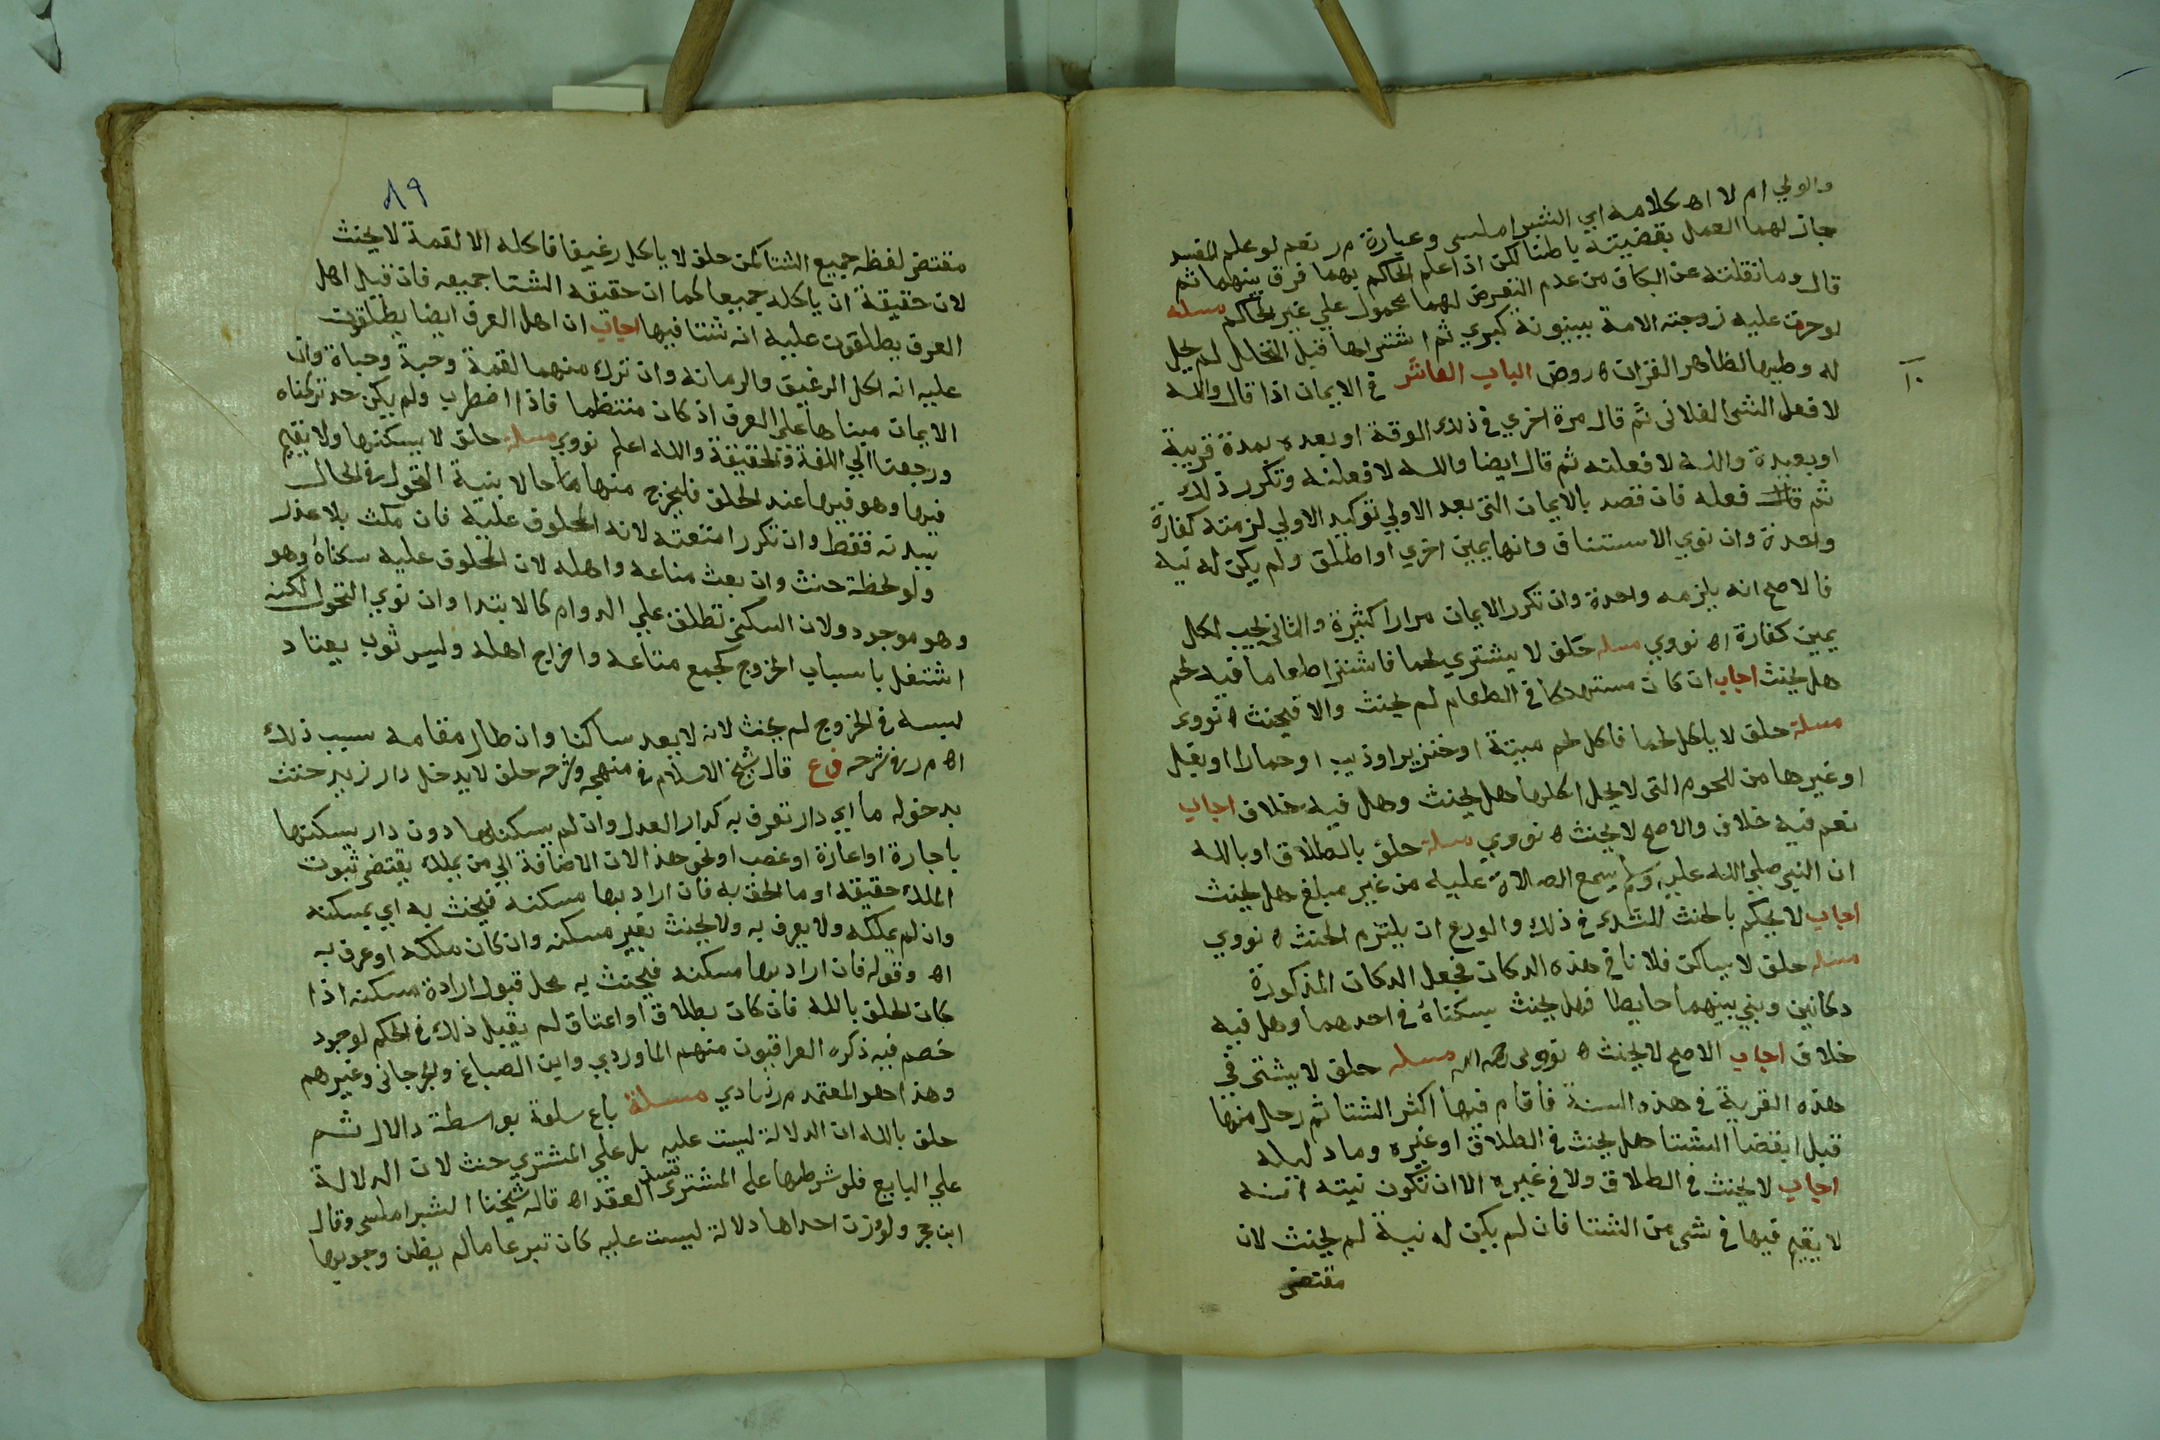 والولي ام لا اه كلامه اي الشبراملسي وعبارة م ر نعم لو علم المفسد
جاز لهما العمل بقضيته باطنا لكن اذا علم الحاكم بهما فرق بينهما ثم
قال وما نقلته عن الكافي من عدم التعرض لهما محمول علي غير الحاكم مسله
لو حرمت عليه زوجته الامة ببينونة كبري ثم اشتراها قبل التحلل لم يحل
له وطيها لظاهر القران ه روض الباب العاشر في الايمان اذا قال والله
١٠
لا فعل الشي الفلاني ثم قال مرة اخري في ذلك الوقة او بعده بمدة قريبة
او بعيدة والله لا فعلته ثم قال ايضا والله لا فعلته وتكرر ذلك
ثم فعله فان قصد بالايمان التي بعد الاولي توكيد الاولي لزمته كفارة
واحدة وان نوي الاستيناف وانها يمين اخري او اطلق ولم يكن له نية
فالاصح انه يلزمه واحدة وان تكرر الايمان مرارا كثيرة والثاني يجب لكل
يمين كفارة اه نووي مسله حلف لا يشتري لحما فاشترا طعاما فيه لحم
هل يحنث اجاب ان كان مستهلكا في الطعام لم يحنث والا فيحنث ه نووي
مسلة حلف لا ياكل لحما فاكل لحم ميتة او خنزير او ذيب او حمار او بغل
او غيرها من اللحوم التي لا يحل اكلها هل يحنث وهل فيه خلاف اجاب
نعم فيه خلاف والاصح لا يحنث ه نووي مسلة حلف بالطلاق او بالله
ان النبي صلي الله عليه وسلم يسمع الصلاة عليه من غير مبلغ هل يحنث
اجاب لا يحكم بالحنث للشك في ذلك والورع ان يلتزم الحنث ه نووي
مسله حلف لا يساكن فلانا في هذه الدكان فجعل الدكان المذكورة
دكانين وبني بينهما حايطا فهل يحنث بسكناه في احدهما وهل فيه
خلاف اجاب الاصح لا يحنث ه نووي رحمه الله مسله حلف لا يشتي في
هذه القرية في هذه السنة فاقام فيها اكثر الشتا ثم رحل منها
قبل انقضا الشتا هل يحنث في الطلاق او غيره وما دليله
اجاب لا يحنث في الطلاق ولا في غيره الا ان تكون نيته انه
لا يقيم فيها في شي من الشتا فان لم يكن له نية لم يحنث لان
مقتضي
٨٩
مقتضي لفظه جميع الشتا كمن حلف لا ياكل رغيفا فاكله الا لقمة لا يحنث
لان حقيقة ان ياكله جميعا كما ان حقيقه الشتا جميعه فان قيل اهل
العرف يطلقون عليه انه شتا فيها اجاب ان اهل العرف ايضا يطلقون
عليه انه اكل الرغيف والرمانة وان ترك منهما لقمة وحبة وحباة وان
الايمان مبناها علي العرف اذ كان منتظما فاذا اضطرب ولم يكن حد تركناه
ورجعنا الي اللغة والحقيقة والله اعلم نووي مسلة حلف لا يسكنها ولا يقيم
فيها وهو فيها عند الحلف فليخرج منها حالا بنية التحول في الحال
ببدنه فقط وان تكرر امتعته لانه المحلوف عليه فان مكث بلا عذر
ولو لحظة حنث وان بعث متاعه واهله لان المحلوف عليه سكناه وهو
وهو موجود ولان السكني تطلق علي الدوام كالابتدا وان نوي التحول لكنه
اشتغل باسباب الخروج كجمع متاعه واخراج اهله ولبس ثوب يعتاد
لبسه في الخروج لم يحنث لانه لا يعد ساكنا وان طال مقامه سبب ذلك
اه م ر في شرحه فرع قال شيخ الاسلام في منهجه وشرحه حلف لا يدخل دار زيد حنث
بدخوله ما اي دار تعرف به كدار العدل وان لم يسكنها دون دار يسكنها
باجارة او اعارة او غصب او نحو هذا لان الاضافة الي من يملك يقتضي ثبوت
الملك حقيقة او ما الحق به فان اراد بها مسكنه فيحنث به اي بمسكنه
وان لم يملكه ولا يعرف به ولا يحنث بغير مسكنه وان كان ملكه او عرف به
اه وقوله فان اراد بها مسكنه فيحنث به محل قبول ارادة مسكنه اذا
كان الحلف بالله فان كان بطلاق او اعتاق لم يقبل ذلك في الحكم لوجود
خصم فيه ذكره العراقيون منهم الماوردي وابن الصباغ والجرجاني وغيرهم
وهذا هو المعتمد م ر زيادي مسلة باع سلعة بواسطة دلال ثم
حلف بالله ان الدلالة ليست عليه بل علي المشتري حنث لان الدلالة
علي البايع فلو شرطها علي المشتري فسد العقد اه قاله شيخنا الشبراملسي وقال
ابن حجر ولو وزن احداها دلالة ليست عليه كان تبرعا ما لم يظن وجوبها